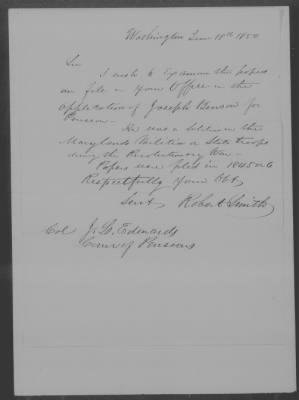 Washington June 18th 1850
Sir
I wish to Examine the papers
on file in your Office in the
application of Joseph Benson for
Pension.
He was a Soldier in the
Maryland Militia or State troops
during the Revolutionary War.
Papers were filed in 1845 or 6
Respectfully Your Obt
Servt Robert Smith
Col J. L. Edwards
Comr of Pensions